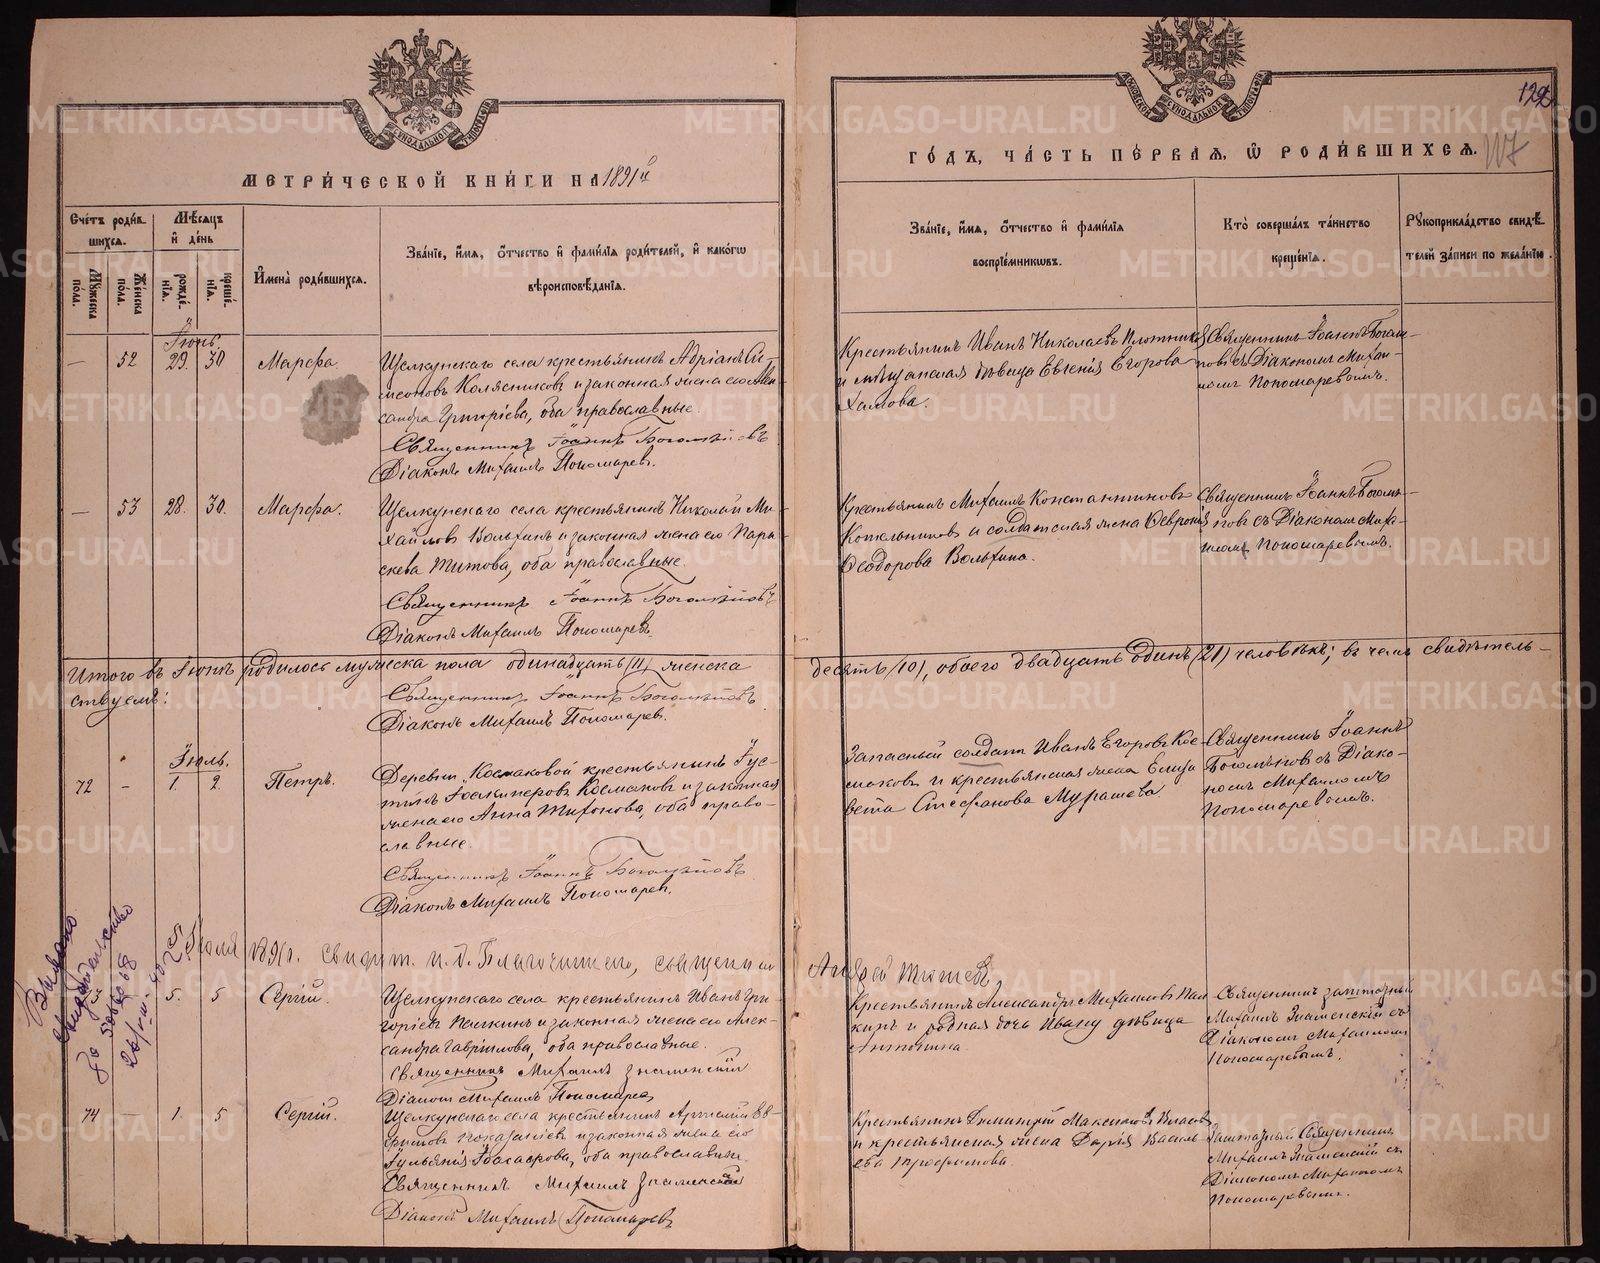 МЕТРИ́ЧЕСКОЙ КНИ́ГИ НА 1891й
Сче́тъ роди́в-
шихся.
Мѣ́сяцъ
и҆ де́нь
Му́жеска
по́ла.
Же́нска
по́ла.
рожде́-
нїя.
креще́-
нїя.
И҆мена̀ роди́вшихся.
Зва́нїе, и҆́мя, ѻ҆́тчество и҆ фами́лїя роди́телей, и҆ како́гѡ
вѣроисповѣ́данїя.
Іюнь.
— 52 29. 30 Марѳа
Щелкунскаго села крестьянинъ Адріанъ Си-
меоновъ Колясниковъ и законная жена его Алек-
сандра Григоріева, оба православные.
Священникъ Іоаннъ Боголѣповъ
Діаконъ Михаилъ Пономарев.
— 53 28. 30. Марѳа.
Щелкунскаго села крестьянинъ Николай Ми-
хайловъ Волхинъ и законная жена его Пара-
скева Титова, оба православные.
Священникъ Іоаннъ Боголѣповъ
Діаконъ Михаилъ Пономаревъ
Итого въ Іюнѣ родилось мужеска пола одинадцать (11), женска
ствуемъ:
Священникъ Іоаннъ Боголѣповъ
Діаконъ Михаилъ Пономарев.
Іюль.
72 — 1. 2. Петръ.
Деревни Космаковой крестьянинъ Іус-
тинъ Космаковъ и законная
жена его Анна Тихонова, оба право-
славные.
Священникъ Іоаннъ Боголѣповъ
Діаконъ Михаилъ Пономарев.
Выдано
свидѣтельство
Іюля 1891г. свидѣт. и.д. Благочиннаго, священник
5. 5 Сергій.
Щелкунскаго села крестьянинъ Иванъ Гри-
горіевъ Палкинъ и законная жена его Алек-
сандра Гавріилова, оба православные.
Священникъ Михаилъ Знаменскій
Діаконъ Михаилъ Пономарев
74 — 1. 5 Сергій.
Щелкунскаго села крестьянинъ Ев-
и законная жена его
Іульянія оба православные.
Священникъ Михаилъ Знаменскій
Діаконъ Михаилъ Пономаревъ
ГО́ДЪ, ЧА́СТЬ ПЕ́РВАЯ, Ѡ҆ РОДИ́ВШИХСЯ.
Зва́нїе, и҆́мя, ѻ҆́тчество и҆ фами́лїя
воспрїе́мникѡвъ.
Кто̀ соверша́лъ та́инство
креще́нїя.
Рꙋкоприкла́дство свидѣ́-
телей за́писи по жела́нїю.
Крестьянинъ Иванъ Николаевъ Плотников
и мѣщанская дѣвица Евгенія Егорова
Хамова.
Священникъ Іоаннъ Богол-
повъ съ Діакономъ Михаи-
ломъ Пономаревымъ.
Крестьянинъ Михаилъ Константиновъ
Котельников и солдатская жена Февронія
Ѳеодорова Волхина.
Священникъ Іоаннъ Боголѣ-
повъ съ Діакономъ Миха-
иломъ Пономаревымъ.
десять (10), обоего двадцать одинъ (21) человѣкъ; въ чемъ свидѣтель-
Запасный солдатъ Иванъ Егоровъ Кос-
маковъ и крестьянская жена Елиза
вета Стефанова Мурашева
Священникъ Іоаннъ
Боголѣповъ съ Діако-
номъ Михаиломъ
Пономаревымъ.
Андрей
Крестьянинъ Александръ Михаиловъ Пал
кинъ и родная дочь Ивану дѣвица
Антонина.
Священникъ заштатный
Михаилъ Знаменскій съ
Діакономъ Михаиломъ
Пономаревымъ.
Крестьянинъ Димитрій Максимовъ Власовъ
и крестьянская жена Дарія Василь-
ева Трофимова.
Заштатный Священникъ
Михаилъ Знаменскій съ
Діакономъ Михаиломъ
Пономаревымъ.
METRIKI.GASO-URAL.RU